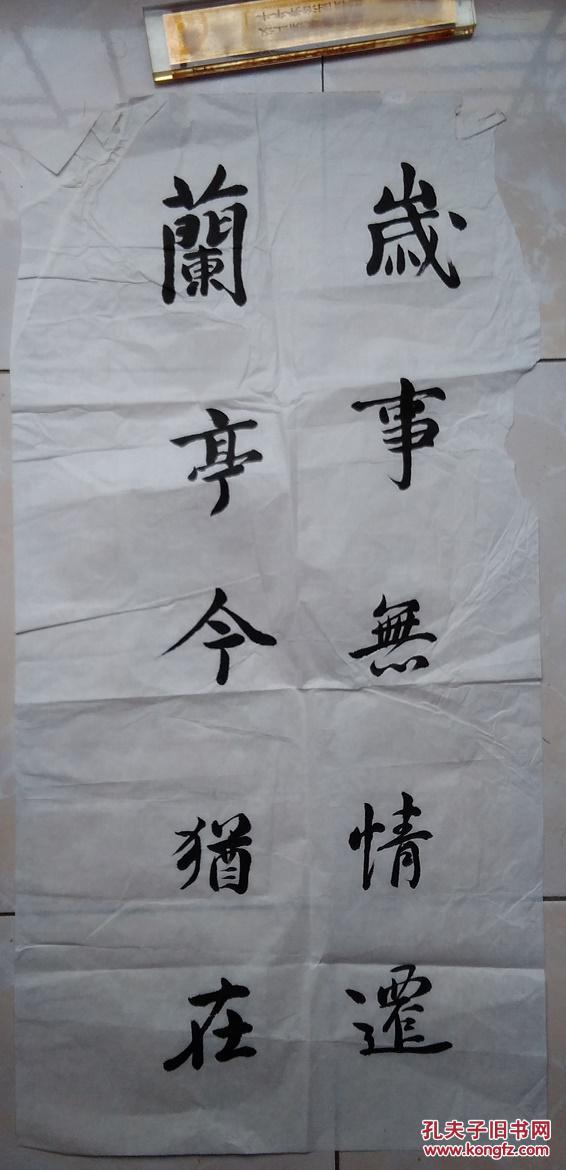 歲事無情遷
蘭亭今猶在
孔夫子旧书网
www.kongfz.com